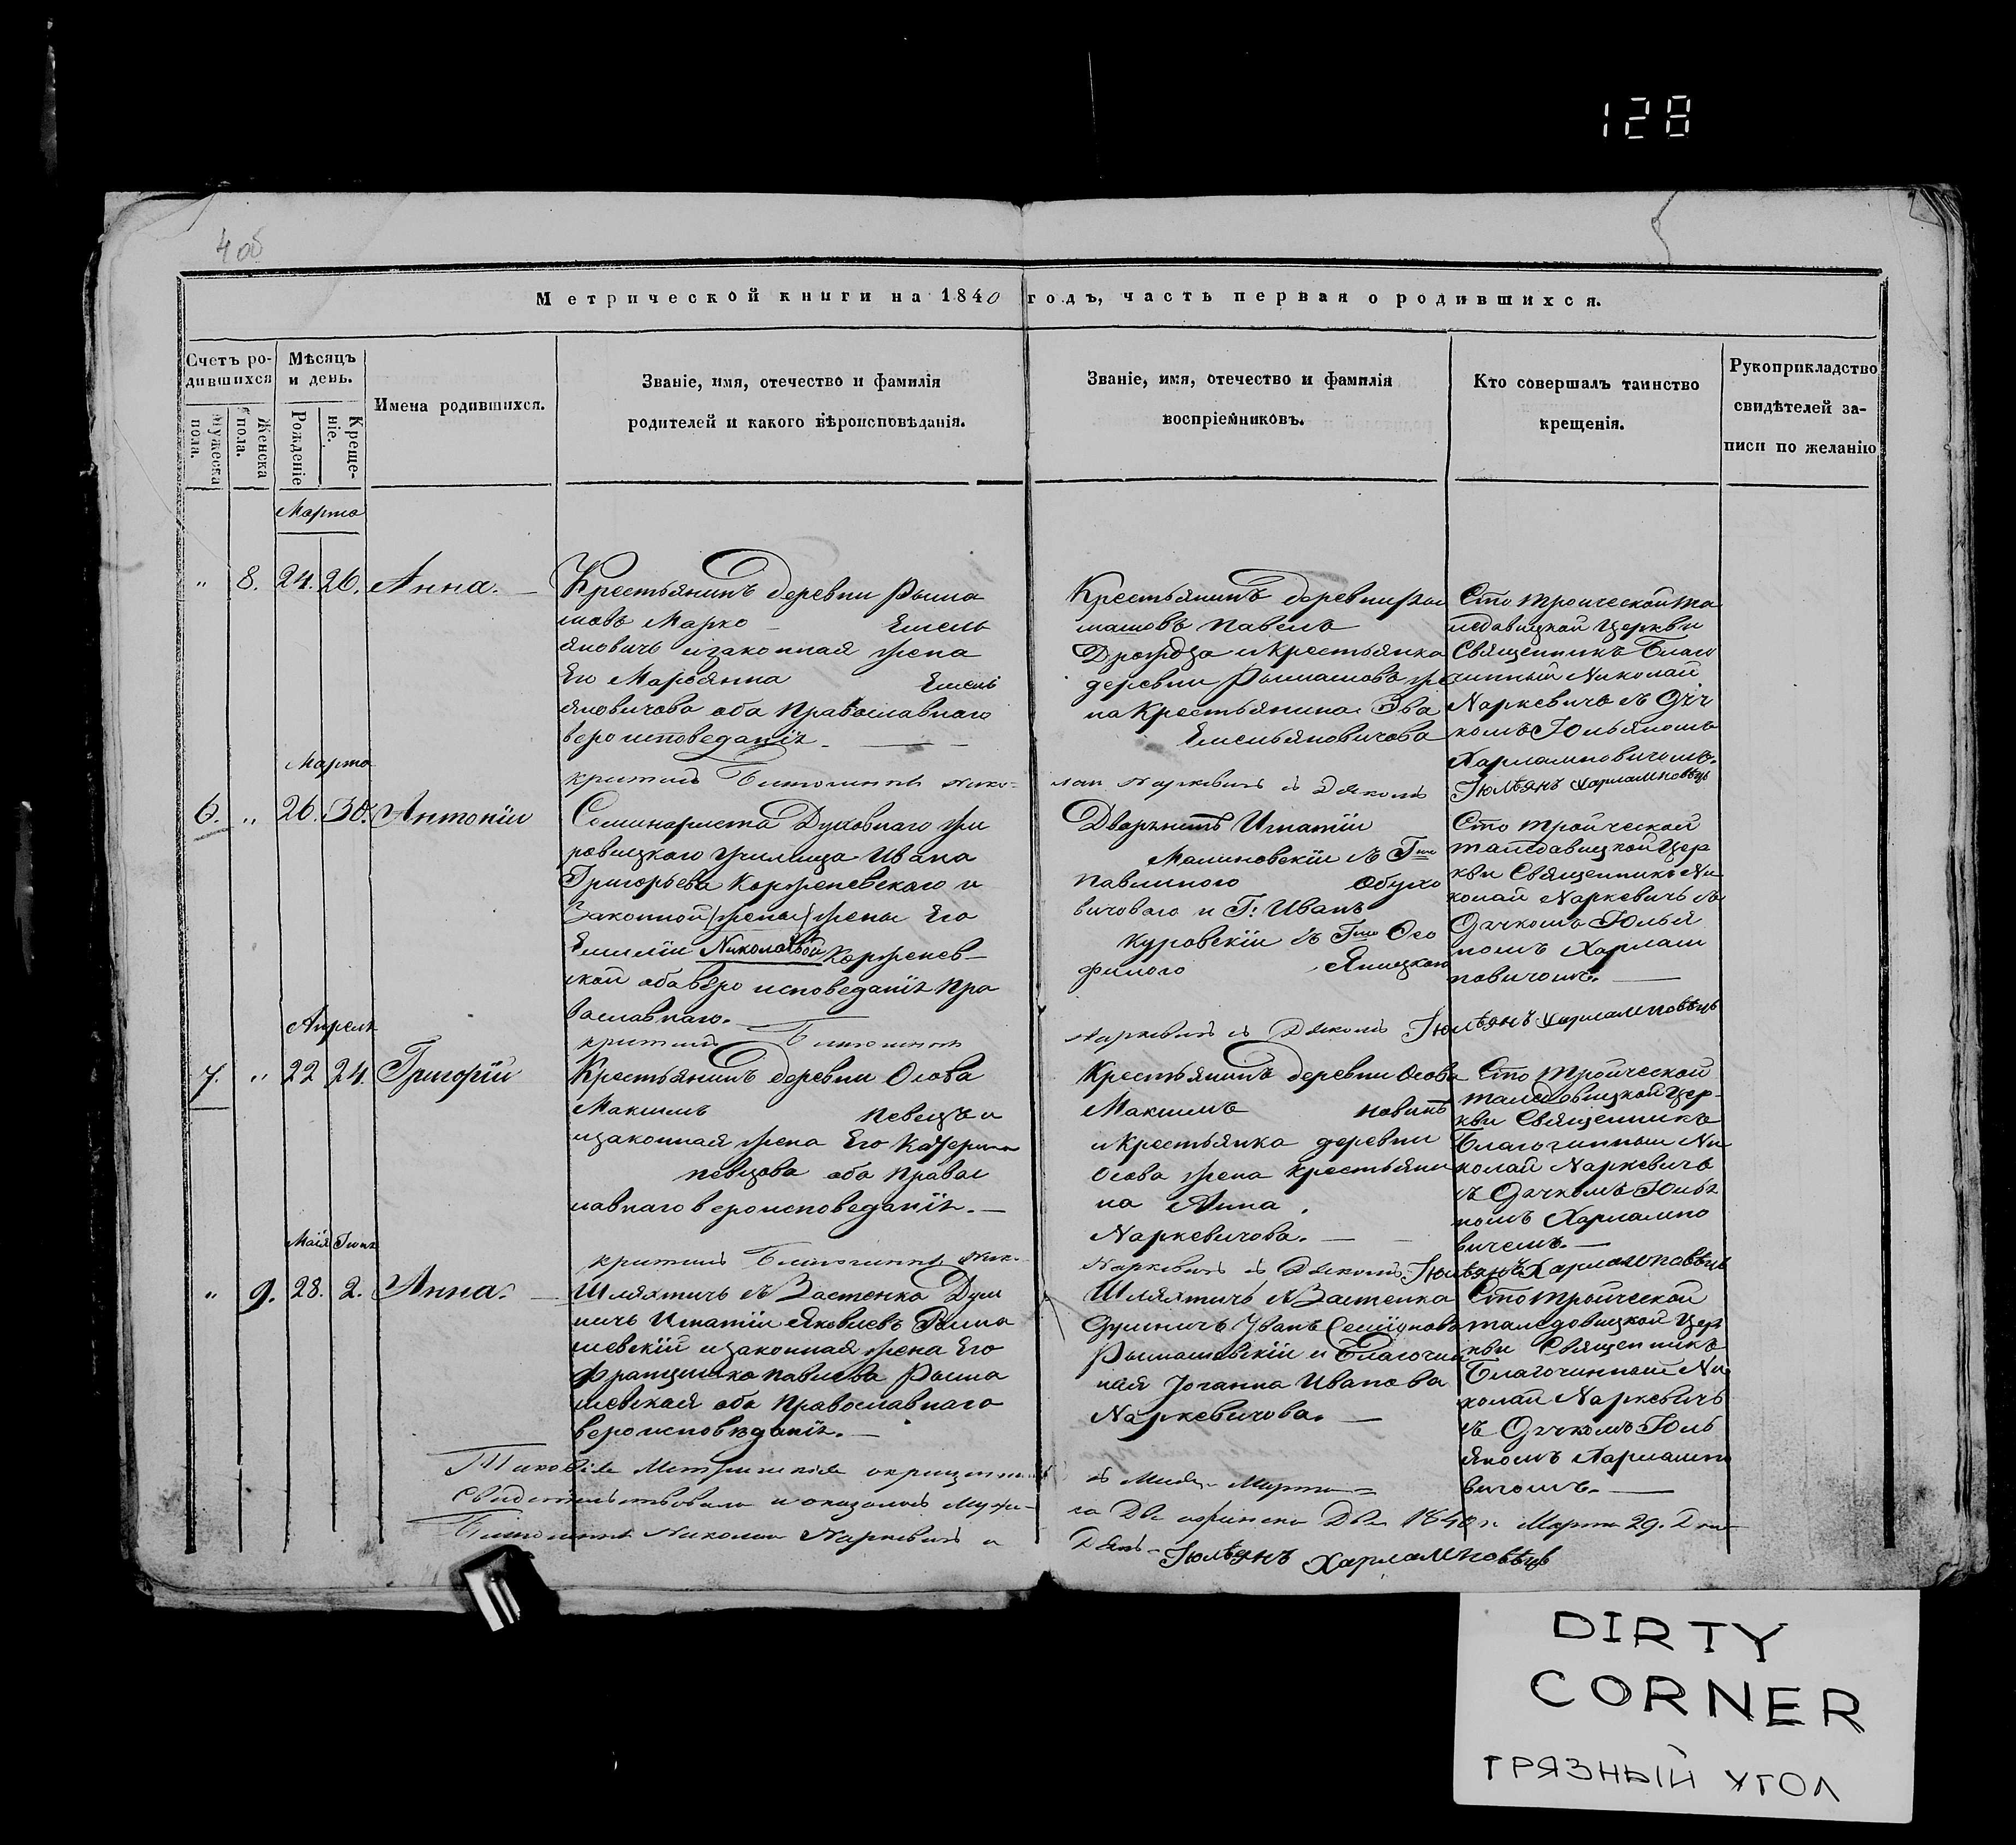 128
4 об
5
Метрической книги на 1840 годъ, часть первая о родившихся.
Счетъ ро-
дившихся
Мужеска пола.
Женска пола.
Мѣсяцъ
и день.
Рожденіе
Креще-
ніе.
Имена родившихся.
Званіе, имя, отечество и фамилія
родителей и какого вѣроисповѣданія.
Званіе, имя, отечество и фамилія
воспріемниковъ.
Кто совершалъ таинство
крещенія.
Рукоприкладство
свидѣтелей за-
писи по желанію
Марта
" 8. 24. 26. Анна.
Крестьянинъ деревни Рыма
шовъ Марко Емель
яновичъ и законная жена
Его Марьянна Емелі
яновичова оба Православнаго
вероисповеданія.
Крестьянинъ деревни Ры
машовъ Павелъ
Дрозда и Крестьянка
деревни Рымашовъ же
на Крестьянина Эва
Емельяновичова
Сто Троической
Церкви
Священникъ Благо
чинный Николай
Наркевичъ съ Дяч
комъ Юльяномъ
Харламповичомъ.
крестилъ Благочинный Нико-
лай Наркевичъ с Дякомъ Юльянъ Харламповичъ
Марта
6. " 26. 30. Антоній
Семинариста Духовнаго Жи
ровицкаго училища Ивана
Григорьева Корженевскаго и
Законной /жены/ жены Его
Емиліи Николаевой Корженев-
ской оба веро исповеданія Пра
вославнаго.
Дворянинъ Игнатій
Малиновскій съ Гжою
Павлиного Обухо
вичоваго и Г: Иванъ
Куровскій съ Гжою Оео
филого Яницкою
Сто Троической
Цер
кви Священникъ Ни
колай Наркевичъ съ
Дячкомъ Юлья
номъ Харлам
повичомъ.
крестилъ Благочинный
Наркевичъ с Дякомъ Юльянъ Харламповичъ
Апреля
7. " 22 24. Григорій
Крестьянинъ деревни Осова
Максимъ Певецъ и
изаконная жена Его Катерина
певцова оба Правос
лавнаго вероисповеданія.
Крестьянинъ деревни Осова
Максимъ
и Крестьянка деревни
Осова жена крестьяни
на Анна
Наркевичова.
Сто Троической
Цер-
кви Священникъ
Благочинный Ни
колай Наркевичъ
съ Дячкомъ Юлья
номъ Харлампо
вичемъ.
крестилъ Благочинный Ник.
Наркевичъ с Дякомъ Юльянъ Харламповичъ
Маія Іюня
" 9. 28. 2. Анна.
Шляхтичъ съ Застенка Дул
ничъ Игнатій Яковлевъ Рыма
шевскій изаконная жена Его
Францишка Павлова Рыма
шевская оба Православнаго
вероисповѣданія.
Шляхтичъ съ Застенка
Дулничъ Иванъ Семіоновъ
Рымашевскій и Благочин
ная Іоганна Иванова
Наркевичова.
Сто Троической
Цер
кви Священникъ
Благочинный Ни
колай Наркевичъ
съ Дячкомъ Юль
яномъ Харлампо
вичомъ.
свидетельствовалъ и оказалось Муже-
ска Две и женска Две 1840 г. Марта 29. Дня
Благочинный Николай Наркевичъ и
Дякъ Юльянъ Харламповичъ
DIRTY
CORNER
ГРЯЗНЫЙ УГОЛ